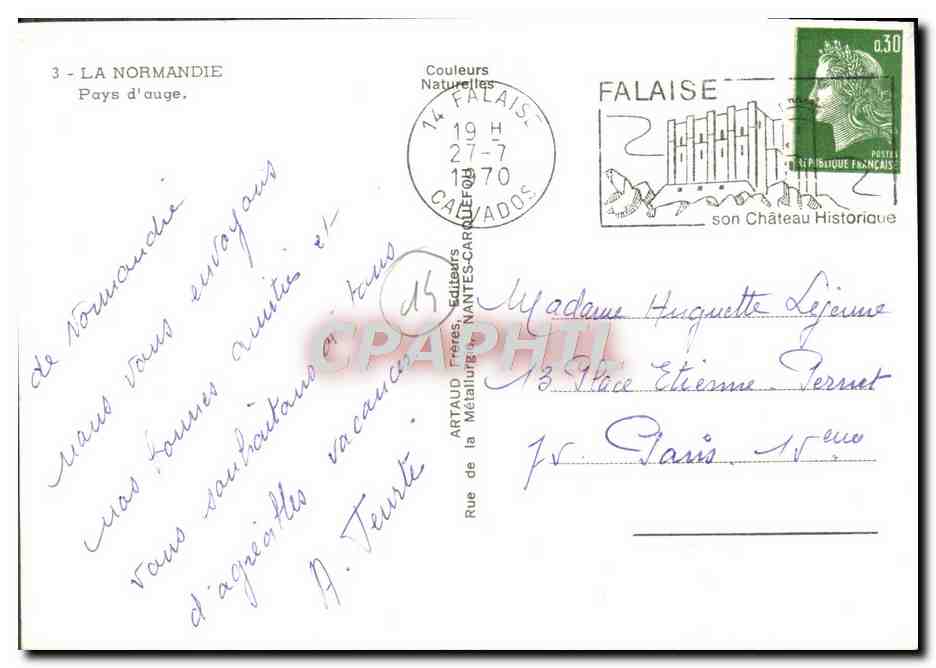 3 - LA NORMANDIE
Pays d'auge.
Couleurs
Naturelles
14 FALAISE
19 H
27-7
1970
CALVADOS
FALAISE
son Château Historique
0,30
POSTES
RÉPUBLIQUE FRANÇAISE
de Normandie
nous vous envoyons
nos bonnes amitiés et
vous souhaitons à tous
d'agréables vacances
A.
15
ARTAUD Frères, Editeurs
Rue de la Métallurgie, NANTES-CARQUEFOU
Madame Huguette Lejeune
13 Place Etienne-Pernet
75. Paris. 15eme
CPAPHIL